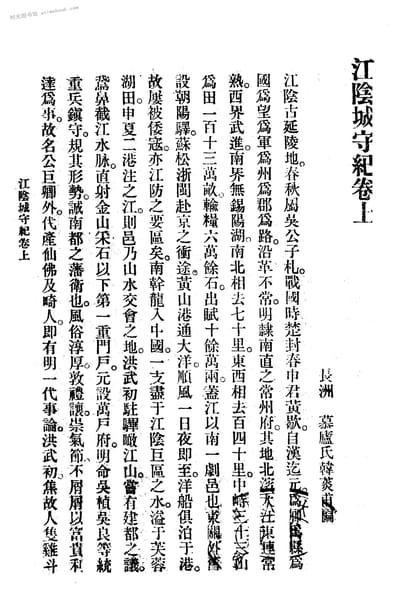 时光图书馆
江陰城守紀卷上
長洲 慕廬氏韓菼
江陰古延陵地。春秋屬吳公子札。戰國時楚封春申君黃歇。自漢迄元為
國為望為軍為州為郡為路。沿革不常。明隸南直之常州府。其地北
熟。西界武進。南界無錫陽湖。南北相去七十里。東西相去百四十里。中
為田一百十三萬畝。輸糧六萬餘石。出賦十餘萬兩。蓋江以南一劇邑也。東
設朝陽驛。蘇松浙閩赴京之衝途。黃山港通大洋。順風一日夜即至。洋船俱泊于港。
故屢被倭寇。亦江防之要區矣。南幹龍入中國。一支盡于江陰。巨區之水溢于芙蓉
湖田。申夏二港注之江。則邑乃山水交會之地。洪武初駐驆瞰江山。嘗有建都之議。
為鼻截江水脈。直射金山。宋石以下第一重門戶。元設萬戶府。明命吳楨吳良等統
重兵鎮守。規其形勢。誠南都之藩衛也。風俗淳厚。敦禮讓。崇氣節。不屑屑以富貴利
達為事。故名公巨卿外。代產仙佛及畸人。即有明一代事論。洪武初焦故人隻雞斗
江陰城守紀卷上